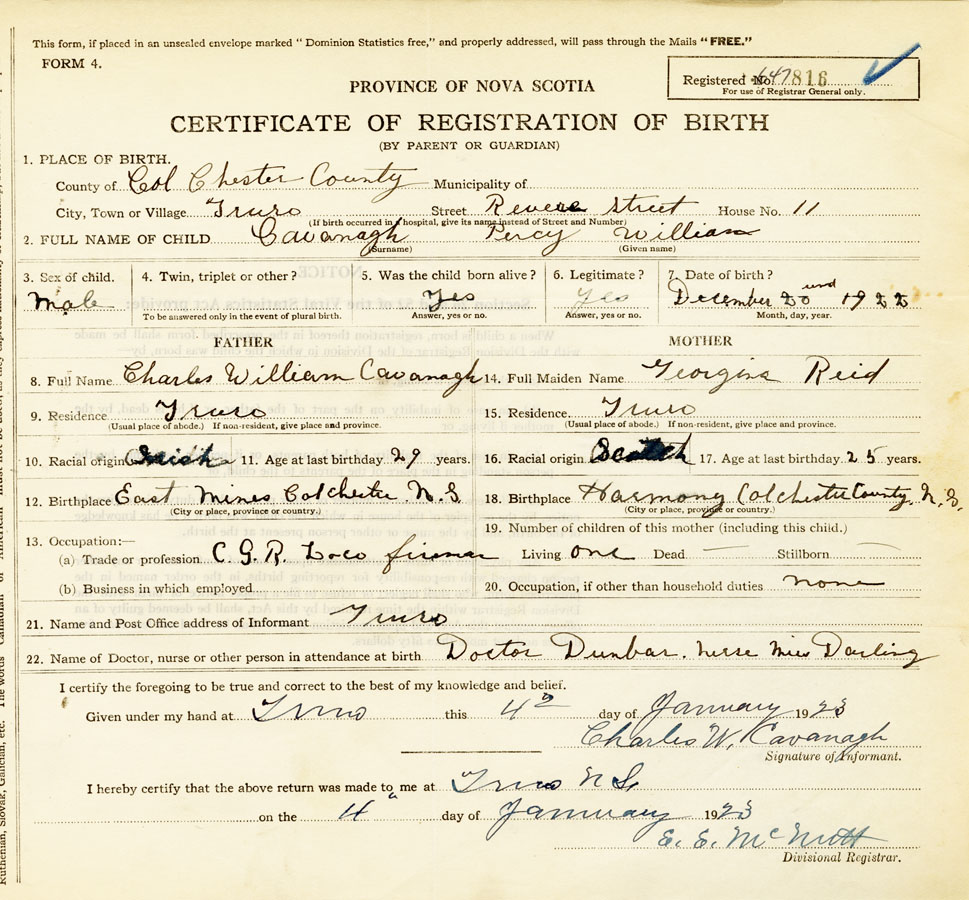 This form, if placed in an unsealed envelope marked "Dominion Statistics free," and properly addressed, will pass through the Mails "FREE."
FORM 4.
Registered No. 816
For use of Registrar General only.
PROVINCE OF NOVA SCOTIA
CERTIFICATE OF REGISTRATION OF BIRTH
(BY PARENT OR GUARDIAN)
1. PLACE OF BIRTH.
County of Col Chester County Municipality of
City, Town or Village Truro Street Revere Street House No. 11
(If birth occurred in a hospital, give its name instead of Street and Number)
2. FULL NAME OF CHILD Cavanagh Percy William
(Surname) (Given name)
3. Sex of child. 4. Twin, triplet or other? 5. Was the child born alive? 6. Legitimate? 7. Date of birth?
Male Yes Yes December 1922
To be answered only in the event of plural birth. Answer, yes or no. Answer, yes or no. Month, day, year.
FATHER MOTHER
8. Full Name Charles William Cavanagh 14. Full Maiden Name Georgina Reid
9. Residence Truro 15. Residence. Truro
(Usual place of abode.) If non-resident, give place and province. (Usual place of abode.) If non-resident, give place and province.
10. Racial origin 11. Age at last birthday 29 years. 16. Racial origin Scotch 17. Age at last birthday 25 years.
12. Birthplace East Mines Colchester N.S. 18. Birthplace Harmony Colchester County, N.S.
(City or place, province or country.) (City or place, province or country.)
19. Number of children of this mother (including this child.)
13. Occupation:—
(a) Trade or profession C.G.R. Loco fireman Living one Dead — Stillborn —
(b) Business in which employed 20. Occupation, if other than household duties none
21. Name and Post Office address of Informant Truro
22. Name of Doctor, nurse or other person in attendance at birth Doctor Dunbar. nurse Miss Darling
I certify the foregoing to be true and correct to the best of my knowledge and belief.
Given under my hand at Truro this 4 day of January 1923
Charles W. Cavanagh
Signature of Informant.
I hereby certify that the above return was made to me at Truro N.S.
on the 4 day of January 1923
E. E. McNutt
Divisional Registrar.